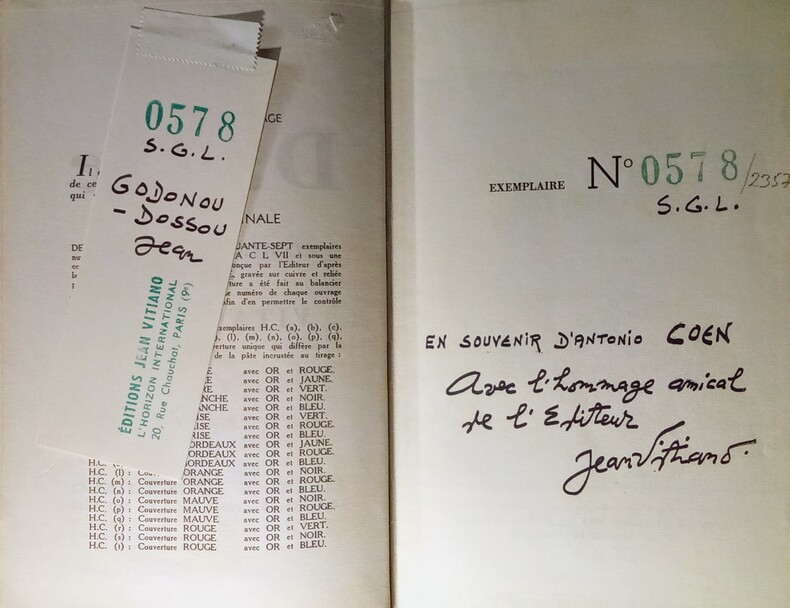 0578
S.G.L.
GODONOU
- DOSSOU
Jean
ÉDITIONS JEAN VITIANO
L'HORIZON INTERNATIONAL
20, Rue Chauchat, PARIS (9e)
AGE
Il
de ce
qui
NALE
DE UANTE-SEPT exemplaires
A C L VII et sous une
onçue par l'Editeur d'après
gravée sur cuivre et reliée
ture a été fait au balancier
e numéro de chaque ouvrage
afin d'en permettre le contrôle
xemplaires H.C. (a), (b), (c),
(l), (m), (n), (o), (p), (q),
verture unique qui diffère par la
de la pâte incrustée au tirage :
E avec OR et ROUGE.
E avec OR et JAUNE.
RE avec OR et VERT.
ANCHE avec OR et NOIR.
ANCHE avec OR et BLEU.
ISE avec OR et VERT.
RISE avec OR et ROUGE.
RISE avec OR et BLEU.
ORDEAUX avec OR et JAUNE.
ORDEAUX avec OR et ROUGE.
ORDEAUX avec OR et BLEU.
H.C. (l) : Couv ORANGE avec OR et NOIR.
H.C. (m) : Couverture ORANGE avec OR et ROUGE.
H.C. (n) : Couverture ORANGE avec OR et BLEU.
H.C. (o) : Couverture MAUVE avec OR et NOIR.
H.C. (p) : Couverture MAUVE avec OR et ROUGE.
H.C. (q) : Couverture MAUVE avec OR et BLEU.
H.C. (r) : Couverture ROUGE avec OR et VERT.
H.C. (s) : Couverture ROUGE avec OR et NOIR.
H.C. (t) : Couverture ROUGE avec OR et BLEU.
EXEMPLAIRE N° 0578/2357
S.G.L.
EN SOUVENIR D'ANTONIO COEN
Avec l'hommage amical
de l'Editeur
Jean Vitiano.